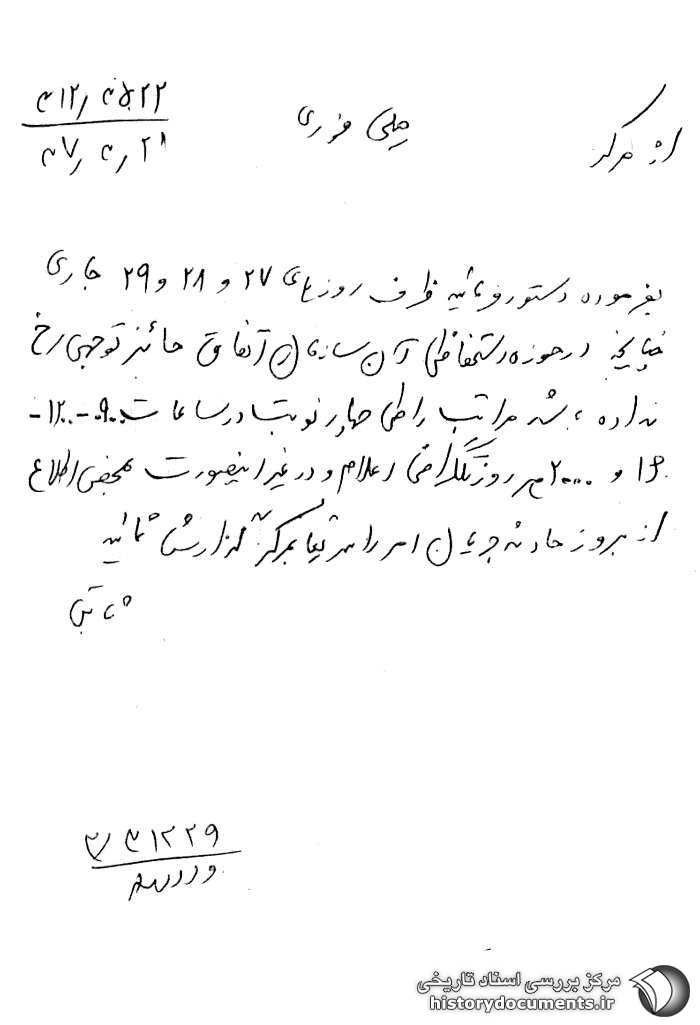 از مرکز
خیلی فوری
۲۸ / ۴ / ۴۷
بفرموده دستور فرمائید ظرف روزهای ۲۷ و ۲۸ و ۲۹ جاری
چنانچه در حوزه استحفاظی آن سازمان اتفاق حائز توجهی رخ
نداده باشد مراتب را طی چهار نوبت در ساعات ۰۹۰۰-۱۲۰۰-
۱۶ و ۲۰۰۰ هر روز تلگرافی اعلام و در غیر اینصورت بمحض اطلاع
از بروز حادثه جریان امر را سریعا بمرکز گزارش نمائید
ثابتی
مرکز بررسی اسناد تاریخی
historydocuments.ir